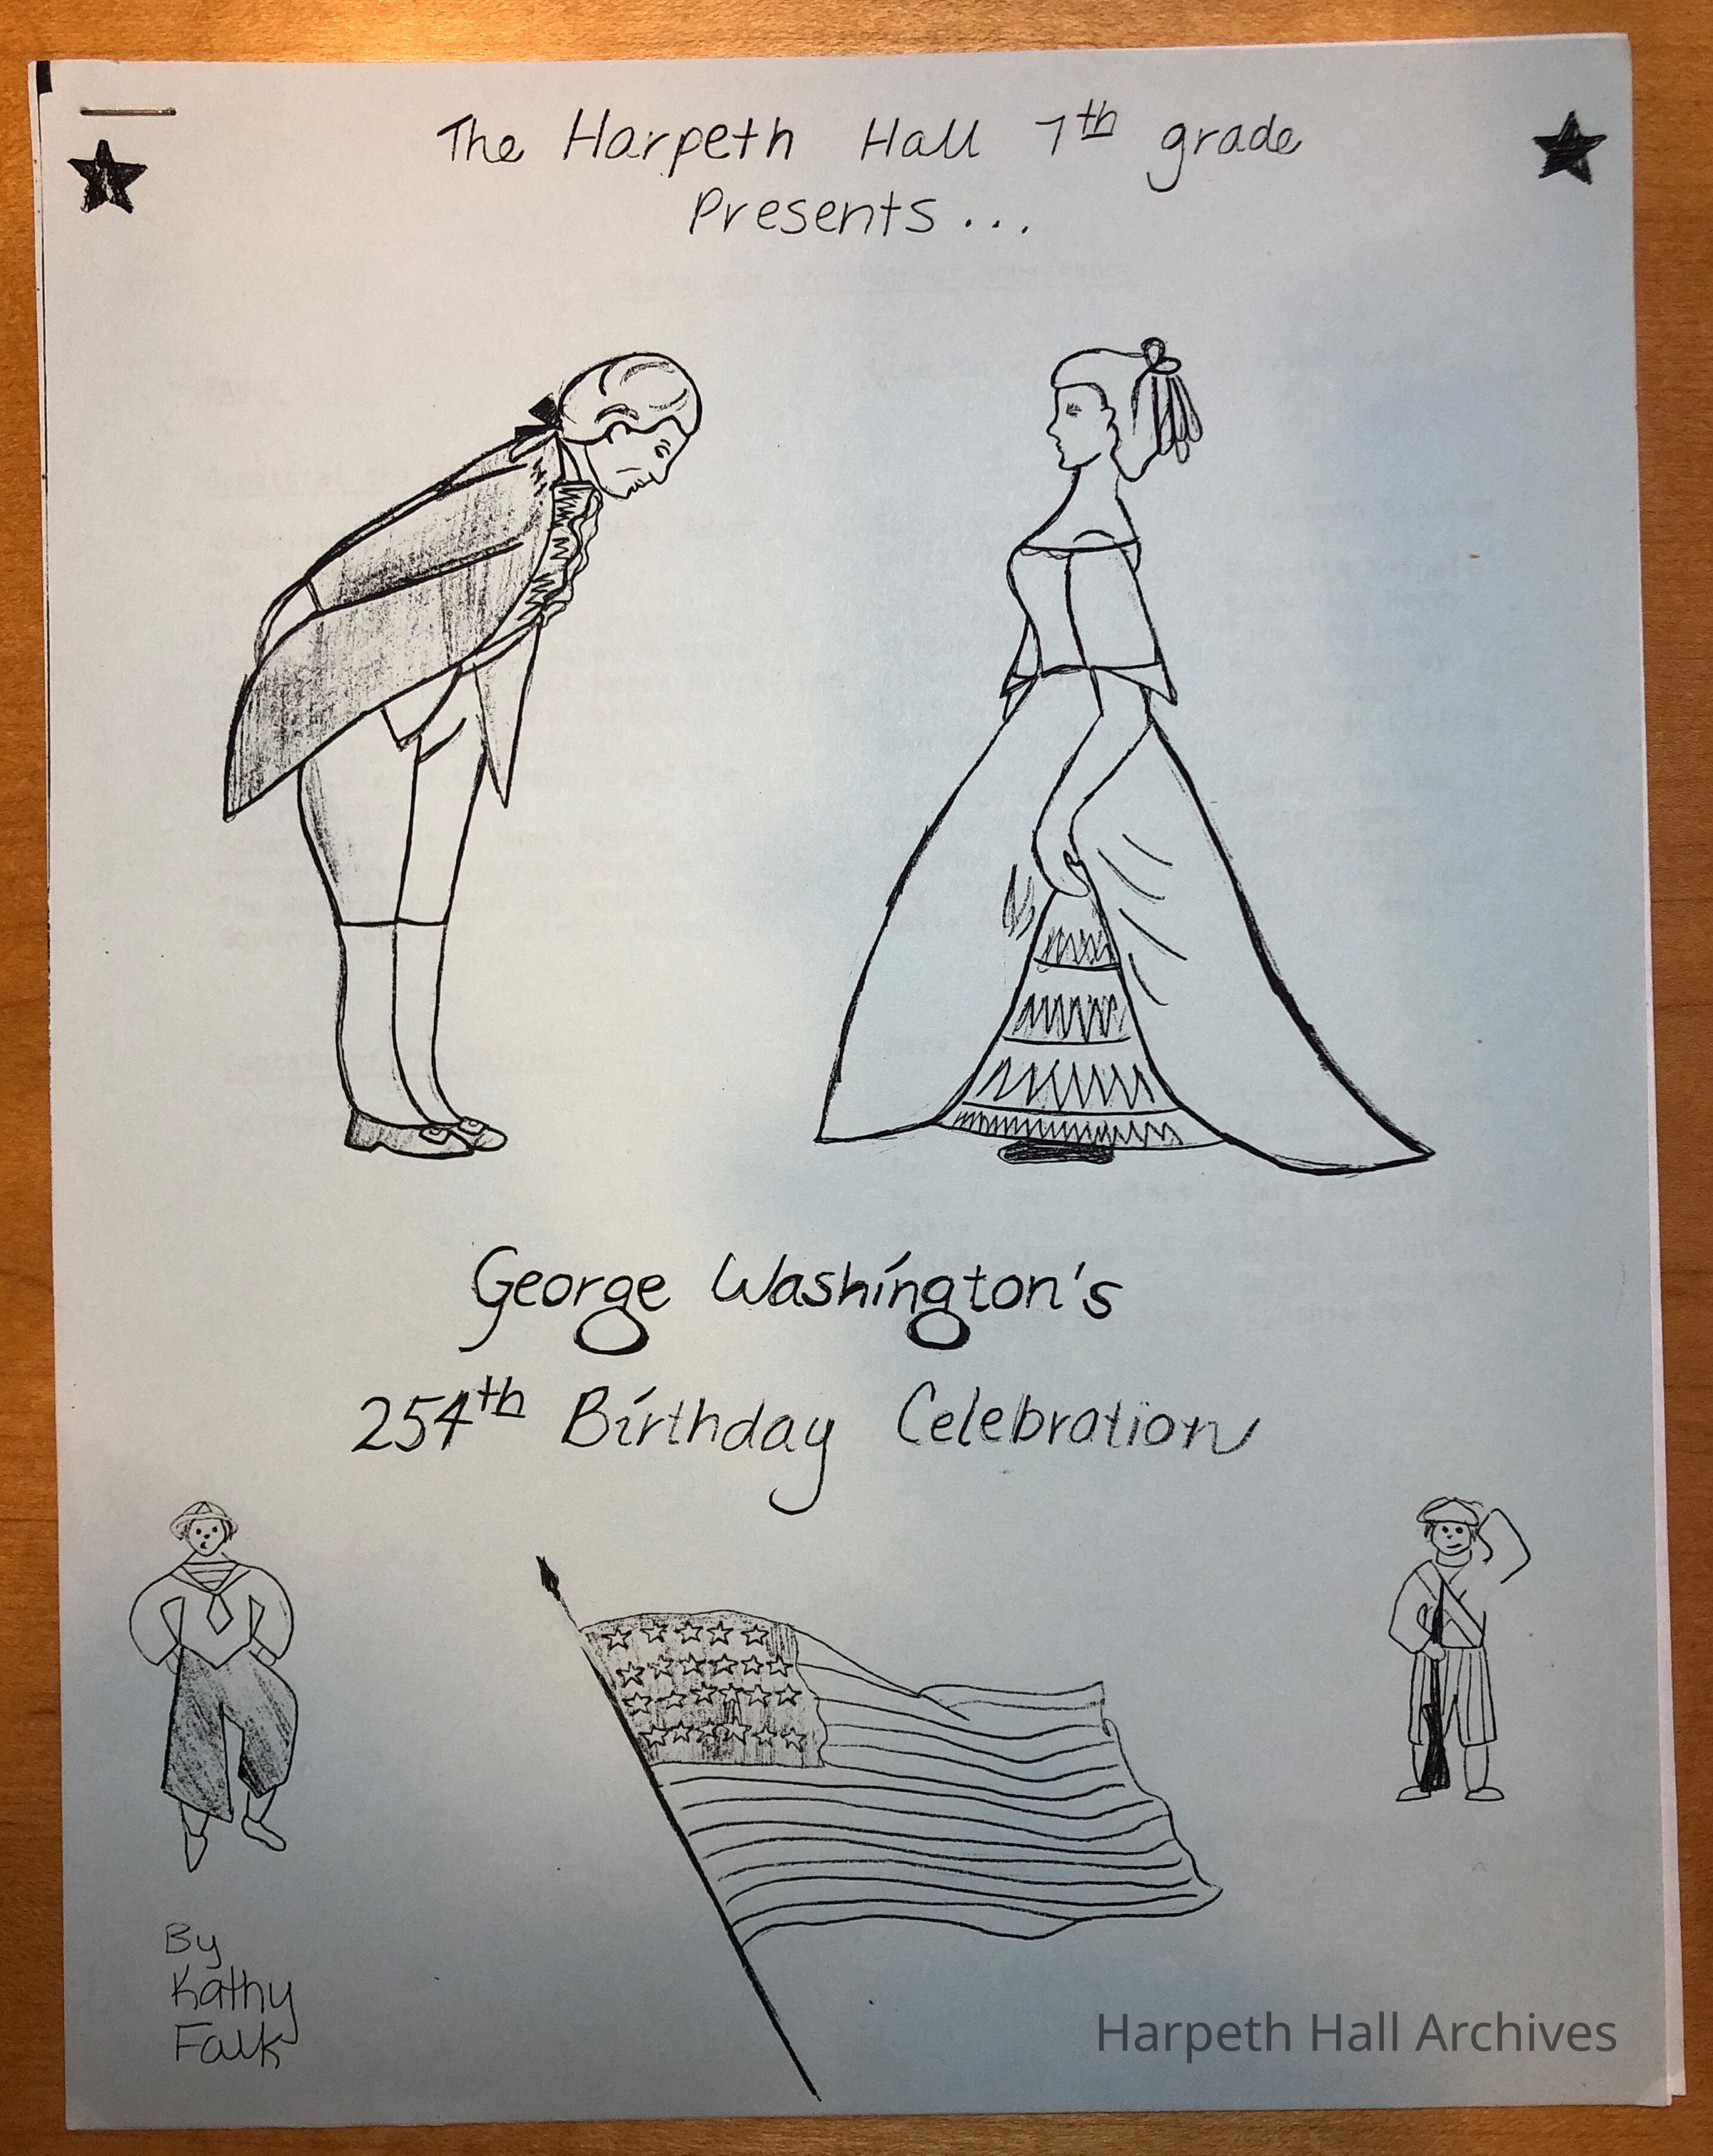 The Harpeth Hall 7th grade
Presents...
George Washington's
254th Birthday Celebration
By
Kathy
Falk
Harpeth Hall Archives